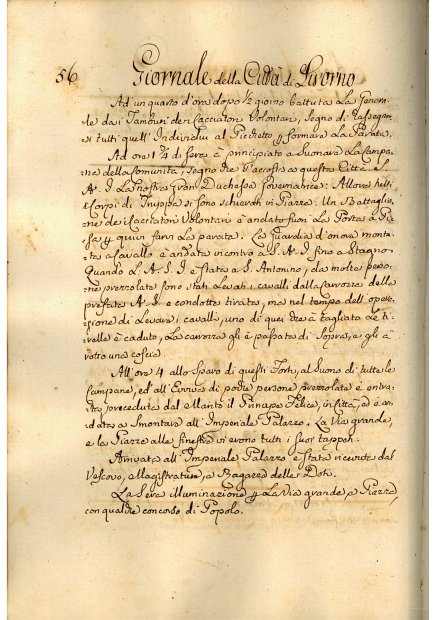 56 Giornale della Città di Livorno
Ad un quarto d'ora dopo ½ giorno battuta La Genera-
le dai Tamburi dei Cacciatori Volontari, Segno di Rassegna
tutti quell'Individui al Picchetto formava La Parata.
Ad ore 1¼ di sera è principiato a Suonare La Campa-
na della Comunità, Segno che s'accosta a questa Città S.
A. I. La Nostra Gran Duchessa Governatrice: Allora tutti
i Corpi di Truppa si sono schierati in Piazza. Un Battaglio-
ne dei Cacciatori Volontari è andato fuori La Porta a Pi-
sa quivi farvi La parata. La Guardia d'onore monta-
ta a Cavallo è andata incontro a S. A. I. fino a Stagno.
Quando L'A. S. I. è stata a S. Antonino, da molte perso-
ne prezzolate sono stati Levati i cavalli dalla Carrozza della
prefata A. I. e condotta tirata, ma nel tempo dell'opera-
zione di Levare i cavalli, uno di quei che à tagliato le ti-
relle è caduto, La carrozza gli è passata di Sopra, e gli à
rotto una coscia.
All'ore 4 allo Sparo di questi Forti, al Suono di tutte le
Campane, ed all'Evviva di poche persone prezzolate è entra-
ta, preceduta dal Marito il Principe Felice, in Città, ed è an-
data a Smontare all'Imperiale Palazzo. La Via grande,
e la Piazza alle finestre vi erono tutti i suoi tappeti.
Arrivata all'Imperiale Palazzo è stata ricevuta dal
Vescovo, Magistratura, e Ragazze delle Doti.
La Sera illuminazione La Via grande, e Piazza
con qualche concorso di Popolo.